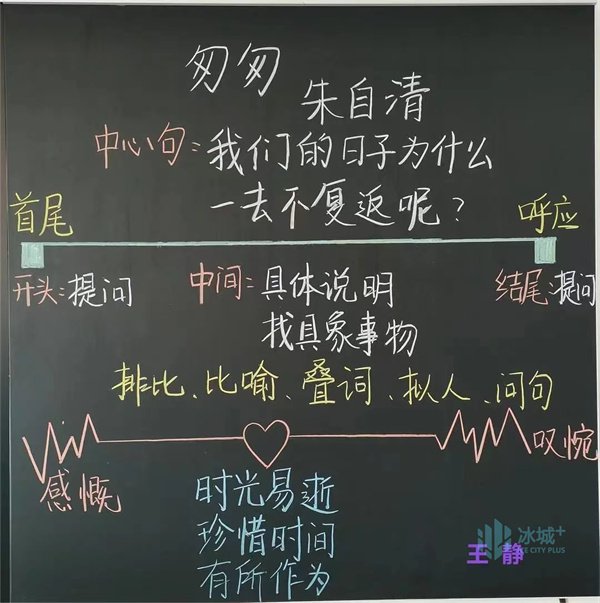 匆匆
朱自清
中心句：我们的日子为什么
一去不复返呢？
首尾 呼应
开头：提问 中间：具体说明 结尾：提问
找具象事物
排比、比喻、叠词、拟人、问句
感慨 叹惋
时光易逝
珍惜时间
有所作为
冰城+
ICE CITY PLUS
王静